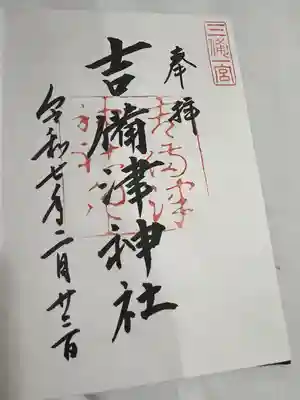 三備一宮
奉拝
吉備津神社
令和七年二月廿二日